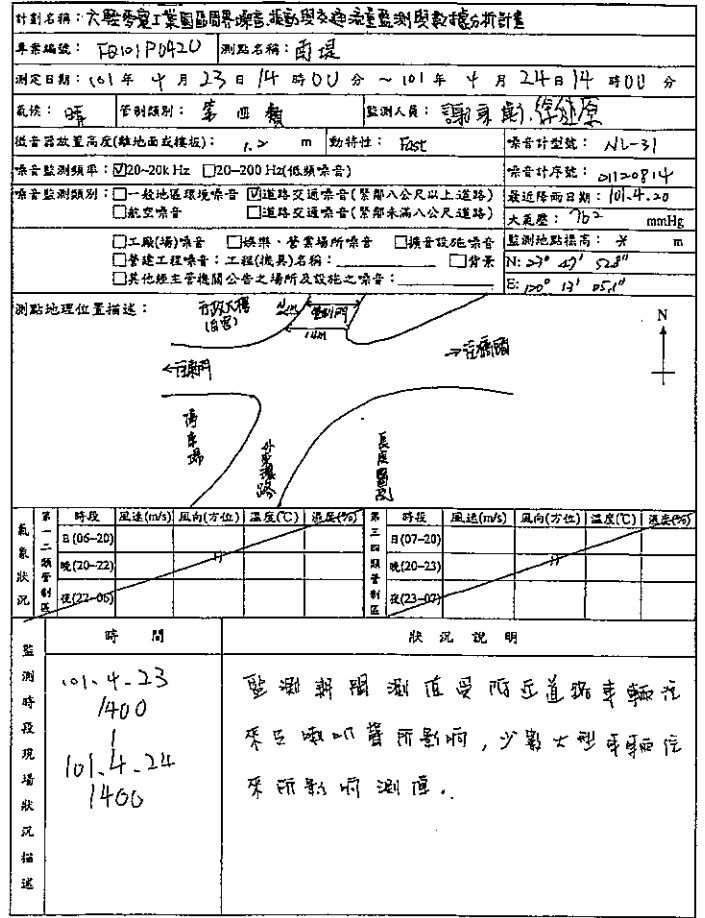 計劃名稱：六輕麥寮工業園區周界噪音、振動與交通流量監測與數據分析計畫
專案編號：FB101P0420 測點名稱：西堤
測定日期：101 年 4 月 23 日 14 時 00 分 ～ 101 年 4 月 24 日 14 時 00 分
氣候：晴 管制類別：第四類 監測人員：
微音器放置高度(離地面或樓板)：1.2 m 動特性：Fast 噪音計型號：NL-31
噪音監測頻率：☑20~20k Hz □20~200 Hz(低頻噪音) 噪音計序號：01120814
噪音監測類別：□一般地區環境噪音 ☑道路交通噪音(緊鄰八公尺以上道路) 最近降雨日期：101.4.20
□航空噪音 □道路交通噪音(緊鄰未滿八公尺道路) 大氣壓：762 mmHg
□工廠(場)噪音 □娛樂、營業場所噪音 □擴音設施噪音 監測地點標高：* m
□營建工程噪音：工程(機具)名稱： □背景 N: 23° 47' 52.8"
□其他經主管機關公告之場所及設施之噪音： E: 120° 13' 05.1"
測點地理位置描述：
行政大樓 管制門
14m
N
→往橋頭
←往東門
停車場
外東環路
長庚醫院
氣象狀況
第一二類管制區 時段 風速(m/s) 風向(方位) 溫度(℃) 濕度(%) 第三四類管制區 時段 風速(m/s) 風向(方位) 溫度(℃) 濕度(%)
日(06~20) 日(07~20)
晚(20~22) 晚(20~23)
夜(22~06) 夜(23~07)
監測時段現場狀況描述
時間 狀況說明
101.4.23
1400
|
101.4.24
1400
監測期間測值受附近道路車輛往
來及喇叭聲所影响，少數大型車輛往
來所影响測值.